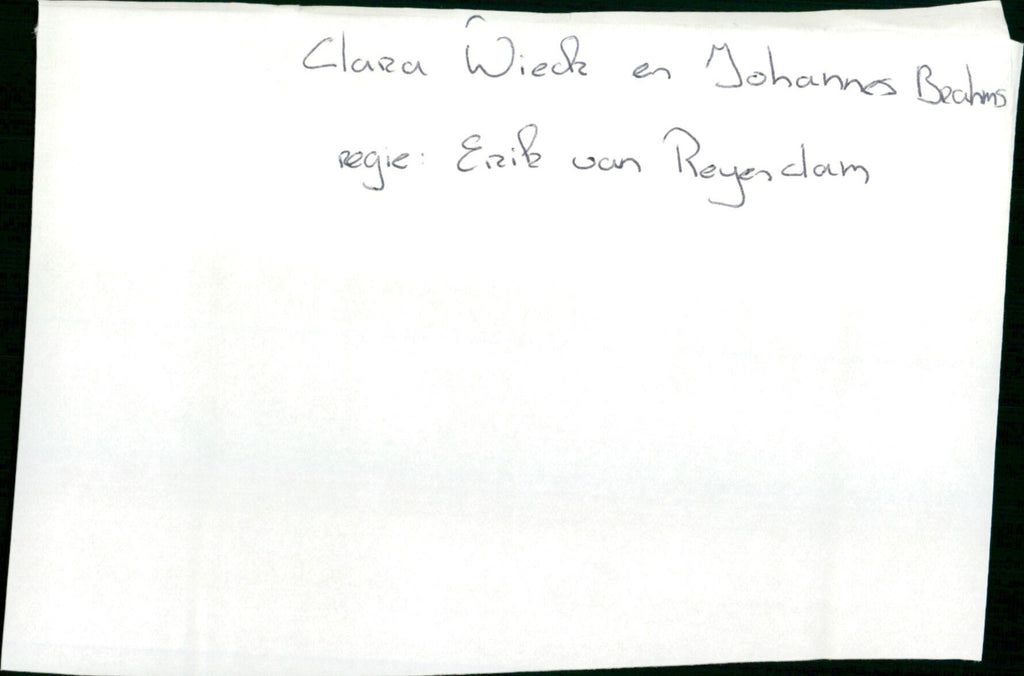 Clara Wieck en Johannes Brahms
regie: Erik van Reyendam